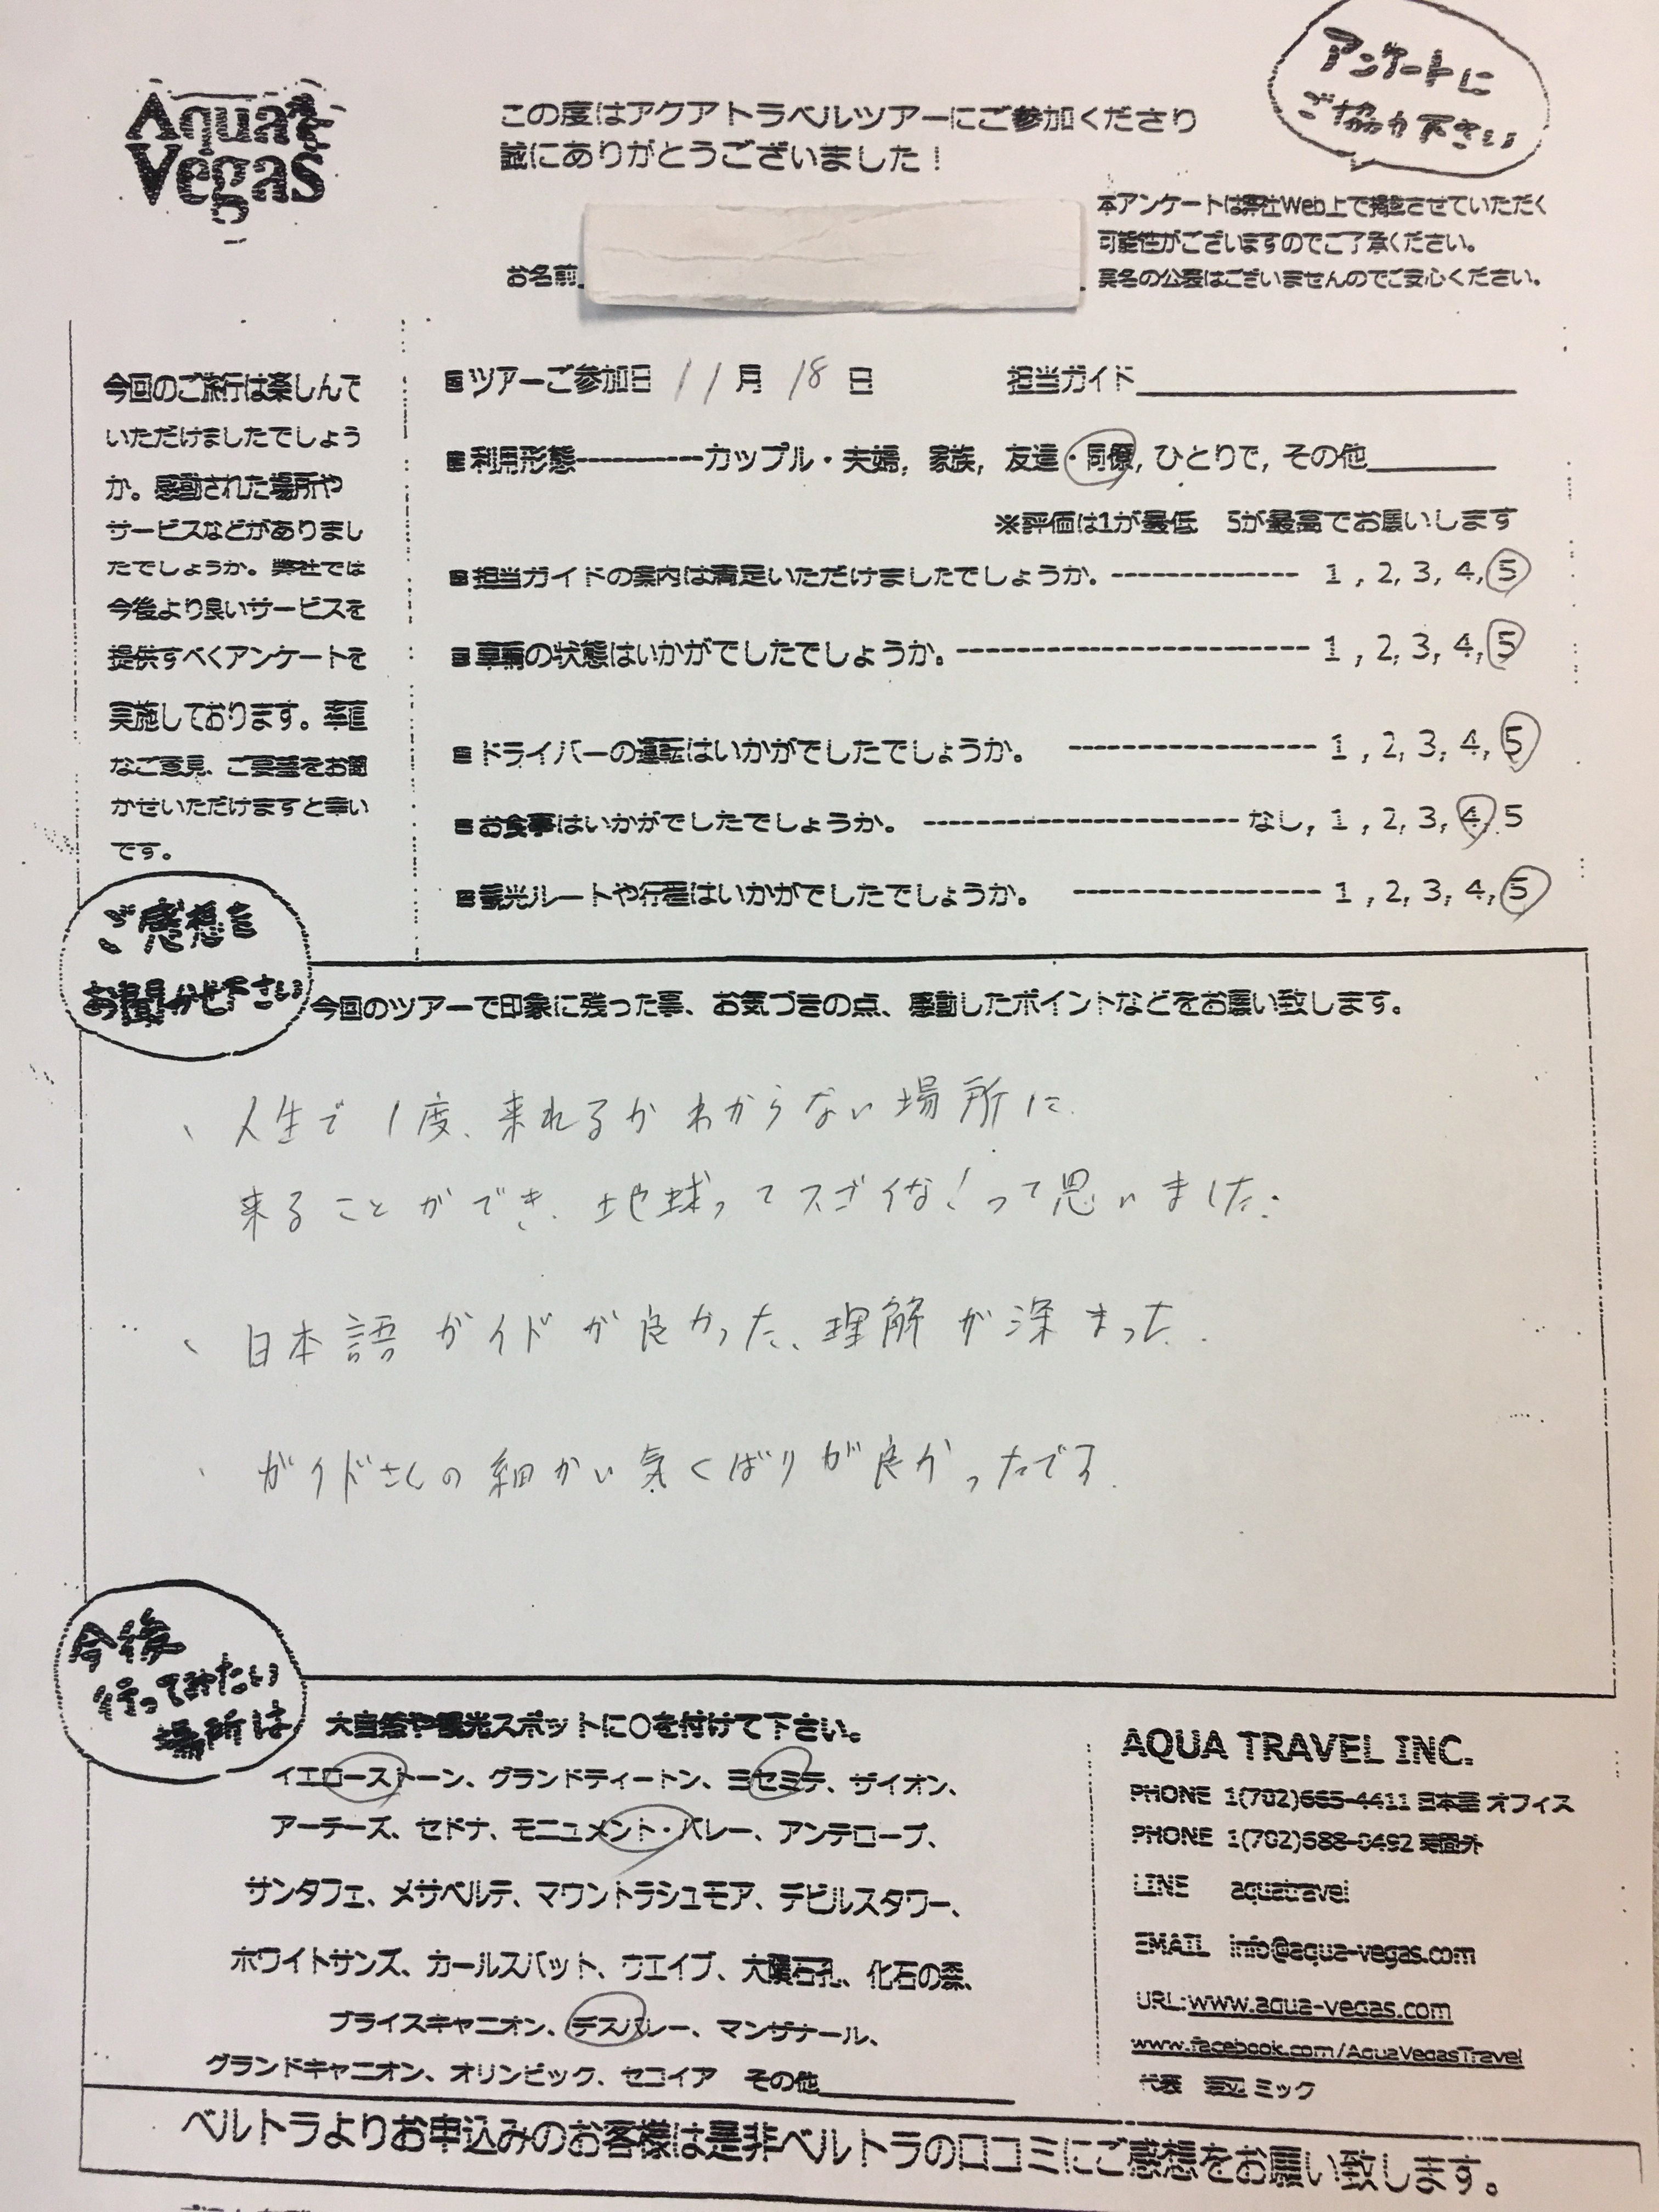 Aqua
Vegas
この度はアクアトラベルツアーにご参加くださり
誠にありがとうございました！
アンケートに
ご協力下さい
本アンケートは弊社Web上で掲載させていただく
可能性がございますのでご了承ください。
実名の公表はございませんのでご安心ください。
お名前
今回のご旅行は楽しんで
いただけましたでしょう
か。感動された場所や
サービスなどがありまし
たでしょうか。弊社では
今後より良いサービスを
提供すべくアンケートを
実施しております。率直
なご意見、ご要望をお聞
かせいただけますと幸い
です。
ツアーご参加日 11月 18日 担当ガイド
利用形態----------カップル・夫婦, 家族, 友達・同僚, ひとりで, その他
※評価は1が最低 5が最高でお願いします
担当ガイドの案内は満足いただけましたでしょうか。-------------- 1 , 2, 3, 4, 5
車輛の状態はいかがでしたでしょうか。----------------------- 1 , 2, 3, 4, 5
ドライバーの運転はいかがでしたでしょうか。 ---------------- 1 , 2, 3, 4, 5
お食事はいかがでしたでしょうか。 -------------------- なし, 1 , 2, 3, 4, 5
観光ルートや行程はいかがでしたでしょうか。 ---------------- 1 , 2, 3, 4, 5
ご感想を
お聞かせ下さい
今回のツアーで印象に残った事、お気づきの点、感動したポイントなどをお願い致します。
、人生で1度、来れるかわからない場所に
来ることができ、地球ってスゴイな！って思いました。
、日本語ガイドが良かった、理解が深まった.
、ガイドさんの細かい気くばりが良かったです.
今後
行ってみたい
場所は
大自然や観光スポットに○を付けて下さい。
イエローストーン、グランドティートン、ヨセミテ、ザイオン、
アーチーズ、セドナ、モニュメント・バレー、アンテロープ、
サンタフェ、メサベルテ、マウントラシュモア、デビルスタワー、
ホワイトサンズ、カールスバット、ウエイブ、大隕石孔、化石の森、
ブライスキャニオン、デスバレー、マンザナール、
グランドキャニオン、オリンピック、セコイア その他
AQUA TRAVEL INC.
PHONE 1(702)665-4411 日本語 オフィス
PHONE 1(702)688-0492 時間外
LINE aquatravel
EMAIL info@aqua-vegas.com
URL:www.aqua-vegas.com
www.facebook.com/AquaVegasTravel
代表 ミック
ベルトラよりお申込みのお客様は是非ベルトラの口コミにご感想をお願い致します。